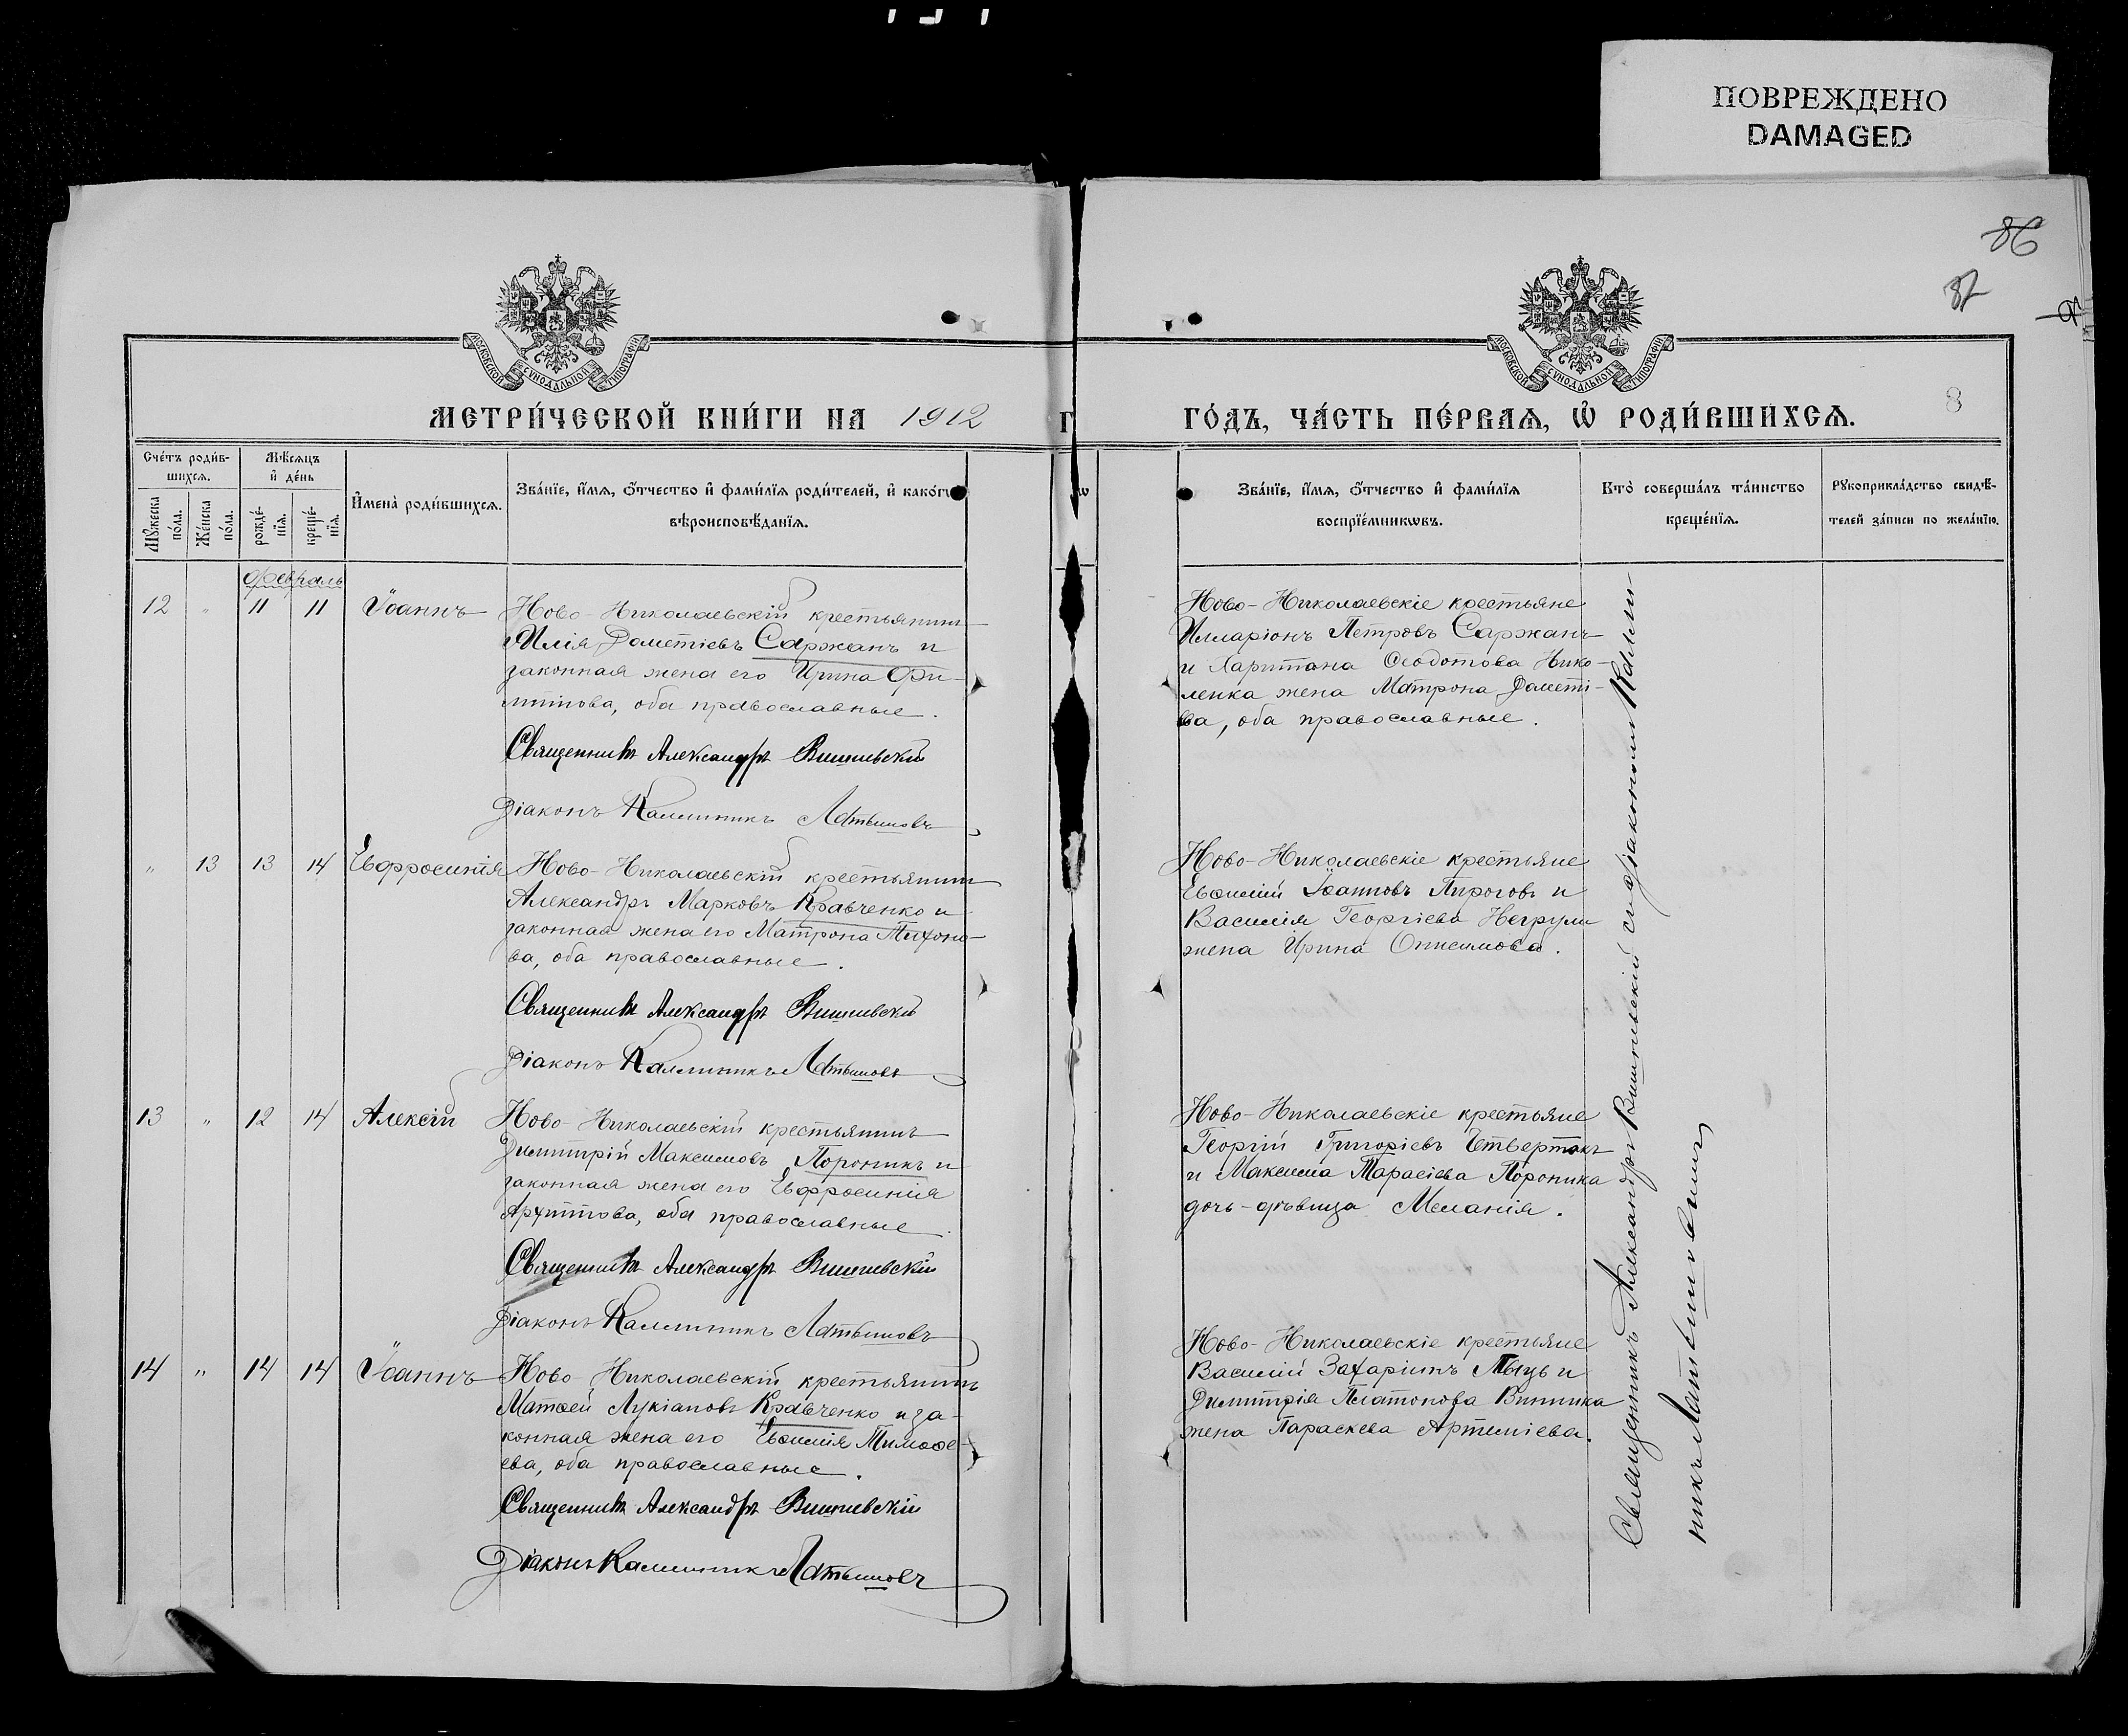 ПОВРЕЖДЕНО
DAMAGED
86
87
МОСКОВСКОЙ СѴНОДАЛЬНОЙ ТИПОГРАФІИ
МОСКОВСКОЙ СѴНОДАЛЬНОЙ ТИПОГРАФІИ
МЕТРИ́ЧЕСКОЙ КНИ́ГИ НА 1912 Г
ГО́ДЪ, ЧА́СТЬ ПЕ́РВАѦ, Ѿ РОДИ́ВШИХСѦ.
8
Сче́тъ роди́в-
шихсѧ.
Мꙋ́жеска по́ла.
Же́нска по́ла.
Мѣ́сѧцъ
и҆ де́нь
рожде́-нїѧ.
креще́-нїѧ.
И҆мена̀ роди́вшихсѧ.
Зва́нїе, и҆́мѧ, ѻ҆́тчество и҆ фами́лїѧ роди́телей, и҆ како́гѡ
вѣроисповѣ́данїѧ.
Зва́нїе, и҆́мѧ, ѻ҆́тчество и҆ фами́лїѧ
воспрїе́мникѡвъ.
Кто̀ соверша́лъ та́инство
креще́нїѧ.
Рꙋкоприкла́дство свидѣ́-
телей за́писи по жела́нїю.
Февраль
12 " 11 11 Іоаннъ
Ново-Николаевскій крестьянинъ
Илія Дометіевъ Саржанъ и
законная жена его Ирина Фи-
липпова, оба православные.
Священникъ Александръ Вишневскій
Діаконъ Каллиникъ Латышовъ
Ново-Николаевскіе крестьяне
Илларіонъ Петровъ Саржанъ
и Харитона Ѳеодотова Нико-
ленка жена Матрона Домети-
ева, оба православные.
" 13 13 14 Евфросинія
Ново-Николаевскій крестьянинъ
Александръ Марковъ Кравченко и
законная жена его Матрона Тихоно-
ва, оба православные.
Священникъ Александръ Вишневскій
Діаконъ Каллиникъ Латышовъ
Ново-Николаевскіе крестьяне
Евѳимій Іоанновъ Пироговъ и
Василія Георгіева Негрули
жена Ирина Онисимова.
13 " 12 14 Алексій
Ново-Николаевскій крестьянинъ
Димитрій Максимовъ Пороникъ и
законная жена его Евфросинія
Архиппова, оба православные.
Священникъ Александръ Вишневскій
Діаконъ Каллиникъ Латышовъ
Ново-Николаевскіе крестьяне
Георгій Григоріевъ Четвертакъ
и Максима Тарасіева Пороника
дочь-дѣвица Меланія.
14 " 14 14 Іоаннъ
Ново-Николаевскій крестьянинъ
Матѳей Лукіановъ Кравченко и за-
конная жена его Евѳимія Тимоѳе-
ева, оба православные.
Священникъ Александръ Вишневскій
Діаконъ Каллиникъ Латышовъ
Ново-Николаевскіе крестьяне
Василій Захаріинъ и
Димитрія Платонова Винника
жена Параскева Артеміева.
Священникъ Александръ Вишневскій съ діакономъ Калли-
никомъ Латышовымъ